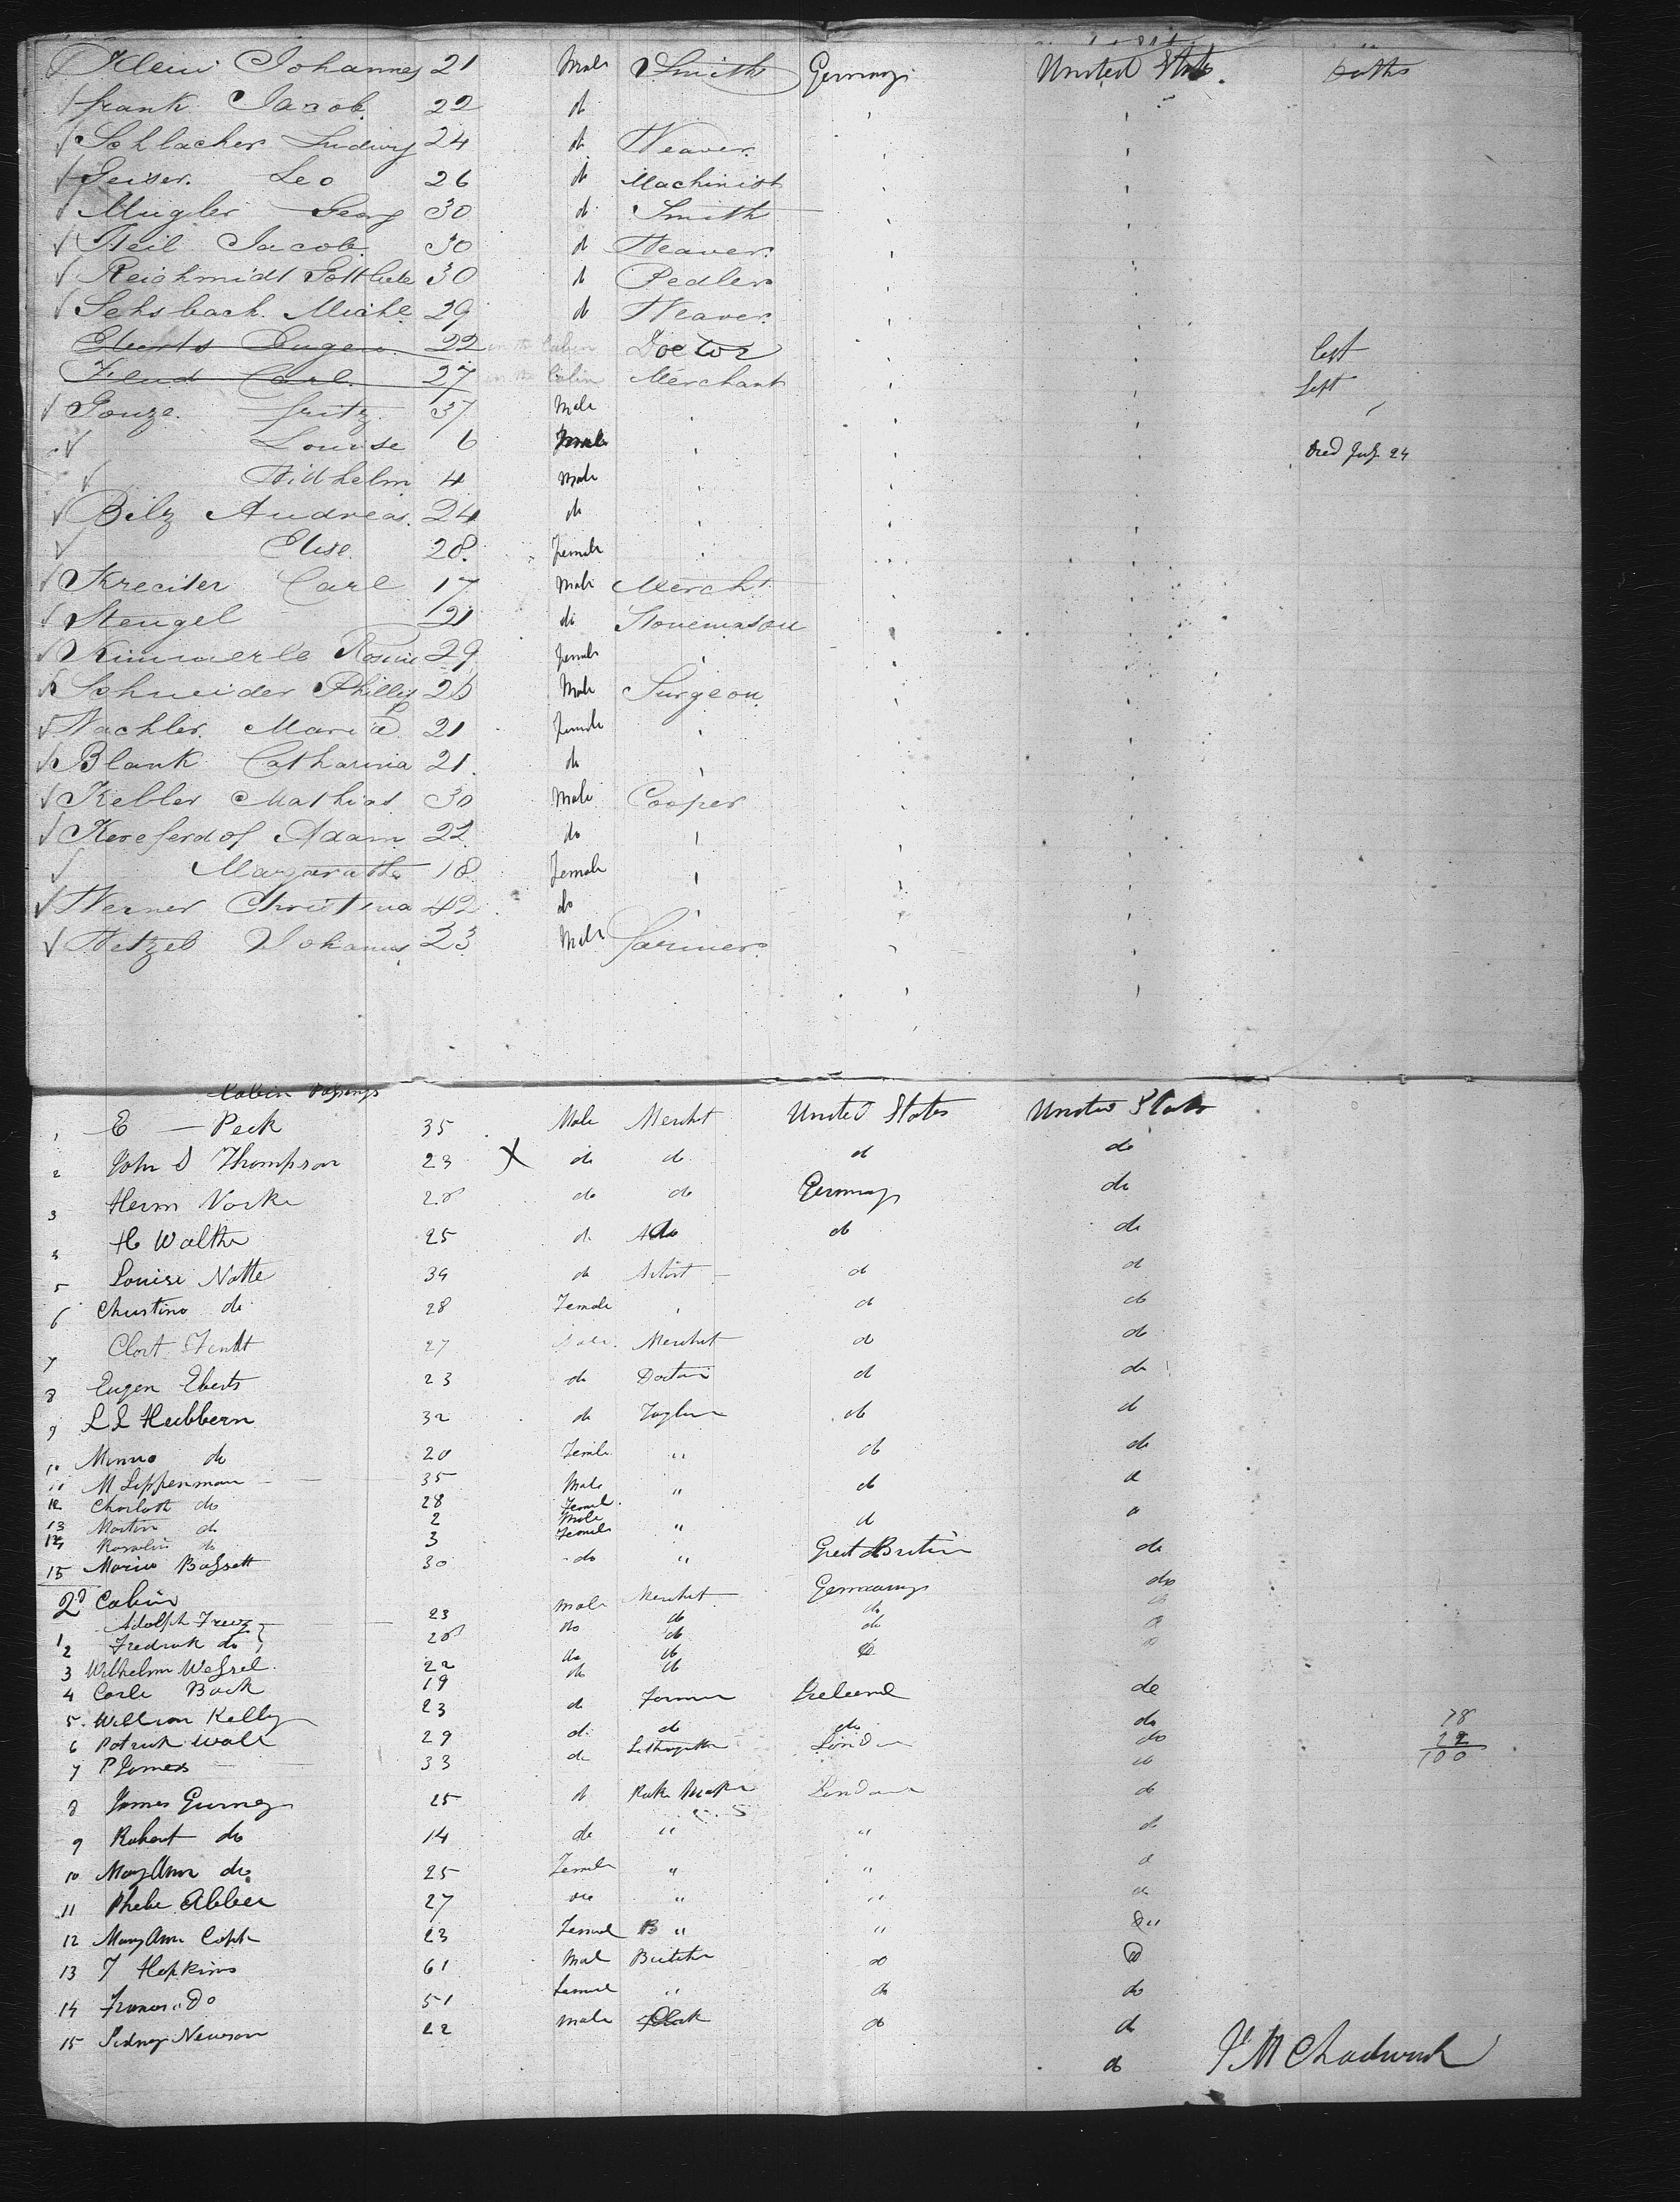 Klein Johannes 21 Male Smith Germany United States Deaths
Frank Jacob 22 do
Schlacher Ludwig 24 do Weaver
Geiser Leo 26 do Machinist
Mugler Georg 30 do Smith
Heil Jacob 30 do Weaver
Reichmidt Gottlieb 30 do Pedler
Sehsbach Michl 29 do Weaver
Eberts Eugen 22 in the Cabin Doctor left
Carl 27 in the Cabin Merchant left
Gouze Fritz 37 Male
Louise 6 Female Died July 24
Wilhelm 4 Male
Bilz Andreas 24 do
Elise 28 Female
Carl 17 Male Mercht
Stengel 21 do Stonemason
Kimmerle Rosine 29 Female
Schneider Phillip 26 Male Surgeon
Wachler Maria 21 Female
Blank Catharina 21 do
Kebler Mathias 30 Male Cooper
Kereferdof Adam 22 do
Margaratha 18 Female
Werner Christina 42 do
Wetzel Johannes 23 Male Farmer
Cabin Passengs
1 E — Peck 35 Male Mercht United States United States
2 John S Thompson 23 X do do do do
3 Herm Vorke 28 do do Germany do
4 H Walthe 25 do do do do
5 Louise Notte 34 do Artist do do
6 Christino do 28 Female do do
7 27 Male Mercht do do
8 Eugen Eberts 23 do Doctor do do
9 L L Hubbern 32 do do do
10 Minno do 20 Female " do do
11 M Lippenman 35 Male " do do
12 Charlott do 28 Female
13 Martin do 2 Male " do do
14 Rosalin do 3 Female
15 Maria Bassett 30 do " Great Britain do
2d Cabin
1 Adolph 23 Male Mercht Germany do
2 Fredrick do 20 do do do do
3 Wilhelm Wessel 22 do do do do
4 Carle Bock 19 do do do do
5 William Kelly 23 do Farmer Ireland do
6 Patrick Wall 29 do do do do 78
7 P Jomes 33 do London do 22
100
8 James Gurney 25 do London do
9 Robert do 14 do " " do
10 Mary Ann do 25 Female " " do
11 Phebe 27 do " " do
12 Mary Ann 23 Female " "
13 T Hopkins 61 Mal Butcher do do
14 Frances Do 51 Femal " do do
15 Sidney Newson 22 Male Clerk do do
do M Chadwick